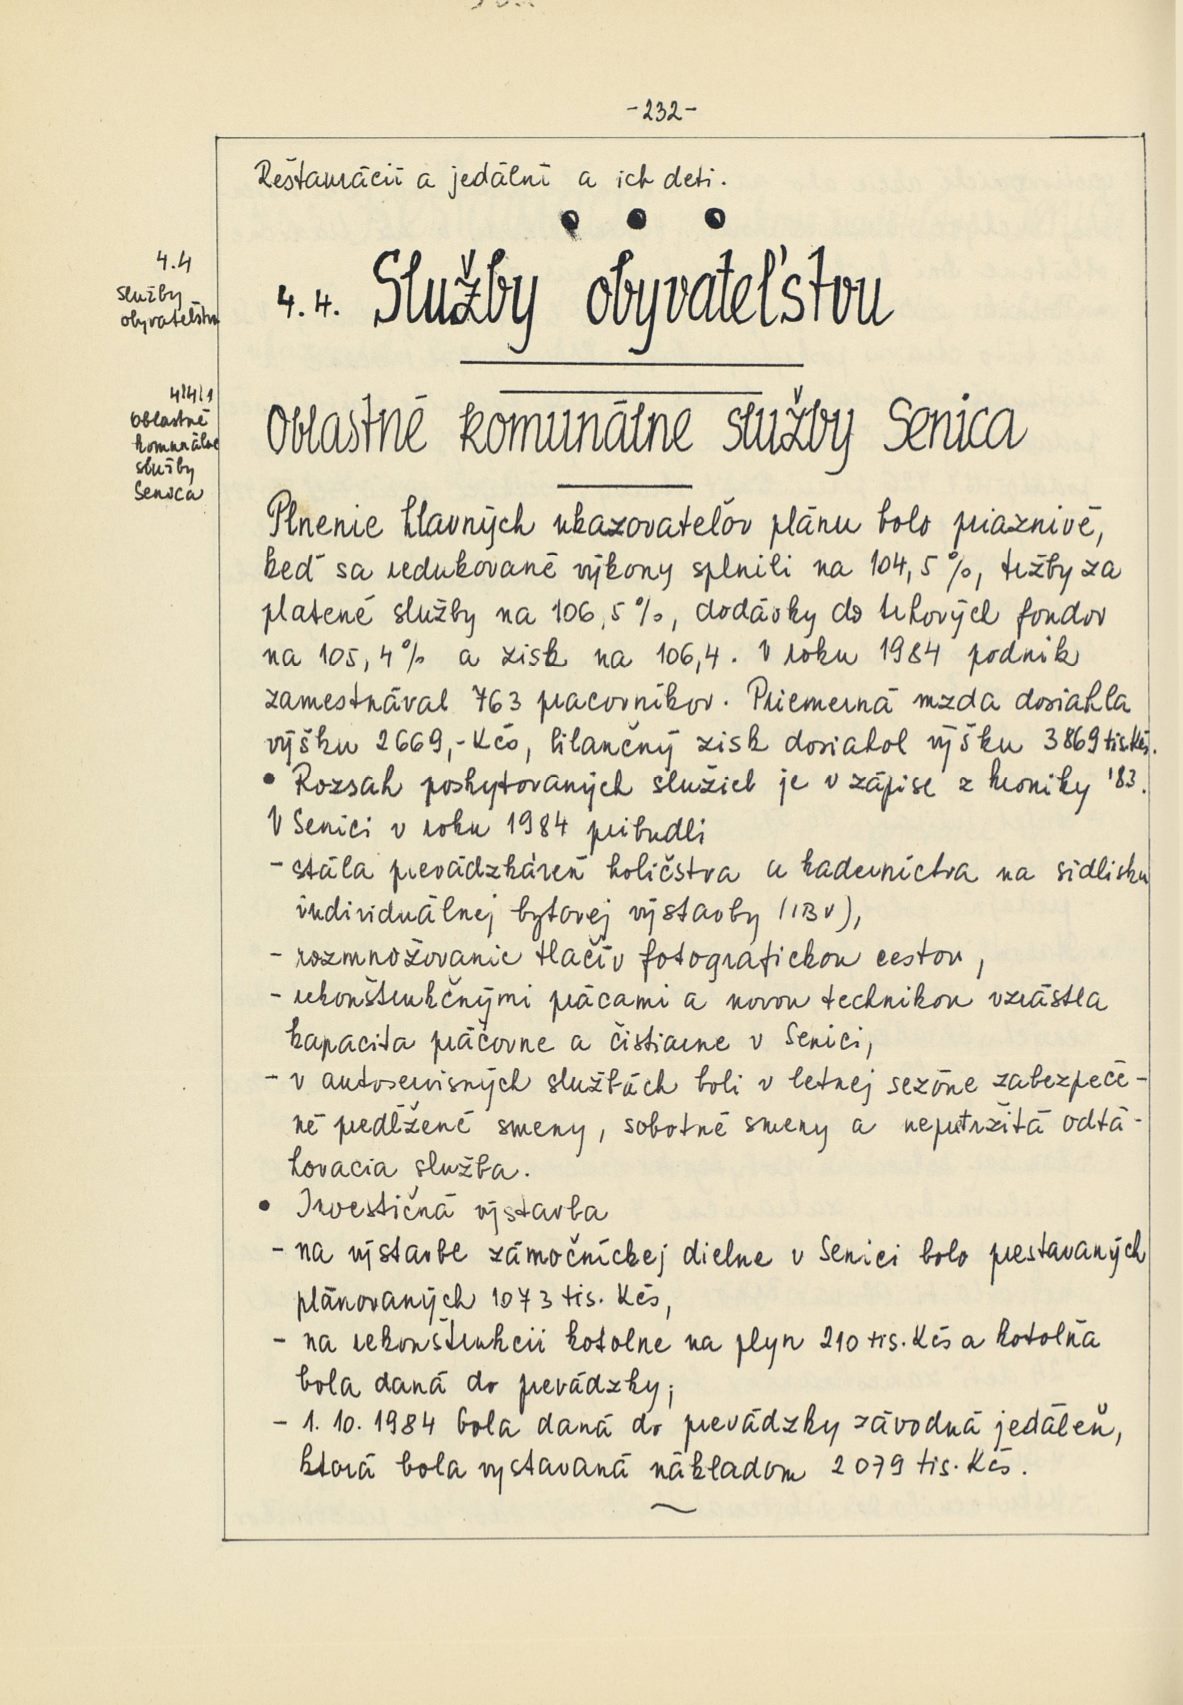 -232-
Reštaurácií a jedální a ich deti.
4.4
služby
obyvateľstvu
4.4. Služby obyvateľstvu
4.4.1
Oblastné
komunálne
služby
Senica
Oblastné komunálne služby Senica
Plnenie hlavných ukazovateľov plánu bolo priaznivé,
keď sa redukované výkony splnili na 104,5 %, tržby za
platené služby na 106,5 %, dodávky do trhových fondov
na 105,4 % a zisk na 106,4. V roku 1984 podnik
zamestnával 763 pracovníkov. Priemerná mzda dosiahla
výšku 2669,- Kčs, bilančný zisk dosiahol výšku 3869 tis.Kčs.
• Rozsah poskytovaných služieb je v zápise z kroniky '83.
V Senici v roku 1984 pribudli
- stála prevádzkáreň holičstva a kaderníctva na sídlisku
individuálnej bytovej výstavby (IBV),
- rozmnožovanie tlačív fotografickou cestou,
- rekonštrukčnými prácami a novou technikou vzrástla
kapacita práčovne a čistiarne v Senici,
- v autoservisných službách boli v letnej sezóne zabezpeče-
né predĺžené smeny, sobotné smeny a nepretržitá odťa-
hovacia služba.
• Investičná výstavba
- na výstavbe zámočníckej dielne v Senici bolo prestavaných
plánovaných 1073 tis. Kčs,
- na rekonštrukcii kotolne na plyn 210 tis. Kčs a kotolňa
bola daná do prevádzky;
- 1. 10. 1984 bola daná do prevádzky závodná jedáleň,
ktorá bola vystavaná nákladom 2 079 tis. Kčs.